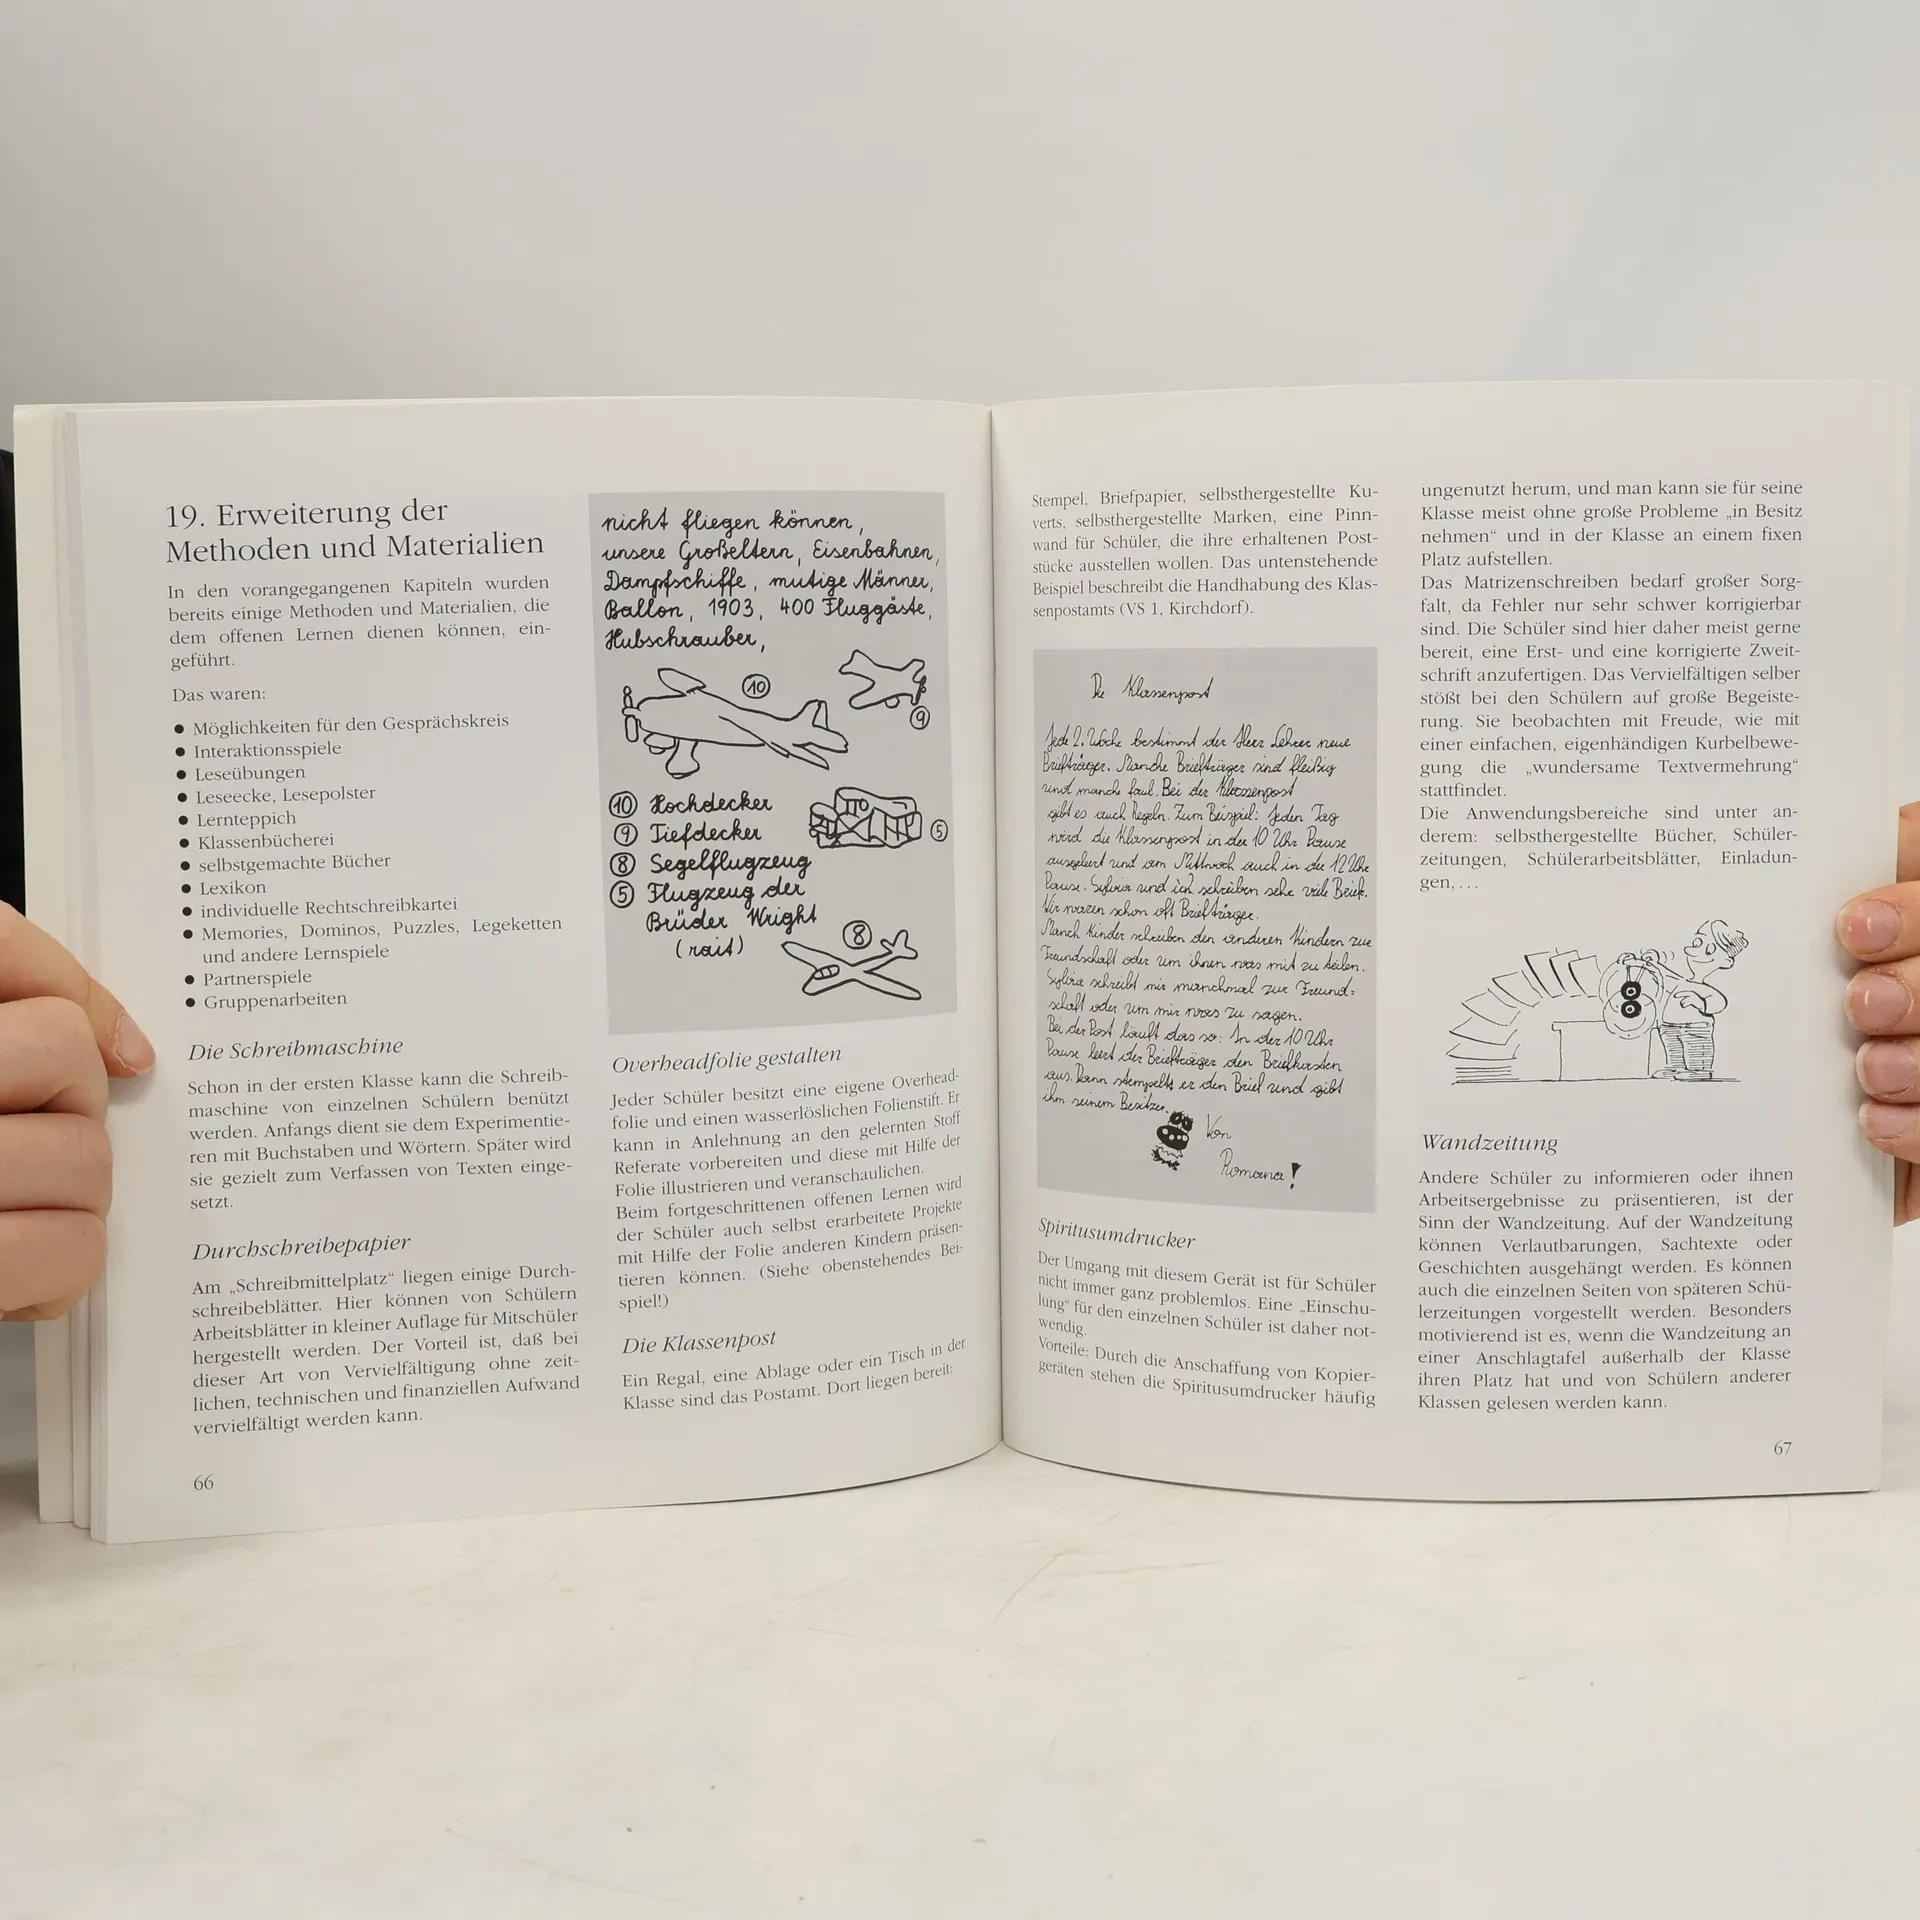 19. Erweiterung der
Methoden und Materialien
In den vorangegangenen Kapiteln wurden
bereits einige Methoden und Materialien, die
dem offenen Lernen dienen können, ein-
geführt.
Das waren:
● Möglichkeiten für den Gesprächskreis
● Interaktionsspiele
● Leseübungen
● Leseecke, Lesepolster
● Lernteppich
● Klassenbücherei
● selbstgemachte Bücher
● Lexikon
● individuelle Rechtschreibkartei
● Memories, Dominos, Puzzles, Legeketten
und andere Lernspiele
● Partnerspiele
● Gruppenarbeiten
Die Schreibmaschine
Schon in der ersten Klasse kann die Schreib-
maschine von einzelnen Schülern benützt
werden. Anfangs dient sie dem Experimentie-
ren mit Buchstaben und Wörtern. Später wird
sie gezielt zum Verfassen von Texten einge-
setzt.
Durchschreibepapier
Am „Schreibmittelplatz“ liegen einige Durch-
schreibeblätter. Hier können von Schülern
Arbeitsblätter in kleiner Auflage für Mitschüler
hergestellt werden. Der Vorteil ist, daß bei
dieser Art von Vervielfältigung ohne zeit-
lichen, technischen und finanziellen Aufwand
vervielfältigt werden kann.
66
nicht fliegen können,
unsere Großeltern, Eisenbahnen,
Dampfschiffe, mutige Männer,
Ballon, 1903, 400 Fluggäste,
Hubschrauber,
10
9
10 Hochdecker
9 Tiefdecker
5
8 Segelflugzeug
5 Flugzeug der
Brüder Wright
(rait)
8
Overheadfolie gestalten
Jeder Schüler besitzt eine eigene Overhead-
folie und einen wasserlöslichen Folienstift. Er
kann in Anlehnung an den gelernten Stoff
Referate vorbereiten und diese mit Hilfe der
Folie illustrieren und veranschaulichen.
Beim fortgeschrittenen offenen Lernen wird
der Schüler auch selbst erarbeitete Projekte
mit Hilfe der Folie anderen Kindern präsen-
tieren können. (Siehe obenstehendes Bei-
spiel!)
Die Klassenpost
Ein Regal, eine Ablage oder ein Tisch in der
Klasse sind das Postamt. Dort liegen bereit:
Stempel, Briefpapier, selbsthergestellte Ku-
verts, selbsthergestellte Marken, eine Pinn-
wand für Schüler, die ihre erhaltenen Post-
stücke ausstellen wollen. Das untenstehende
Beispiel beschreibt die Handhabung des Klas-
senpostamts (VS 1, Kirchdorf).
Die Klassenpost
Jede 2. Woche bestimmt der Herr Lehrer neue
Briefträger. Manche Briefträger sind fleißig
und manche faul. Bei der Klassenpost
gibt es auch Regeln. Zum Beispiel: Jeden Tag
wird die Klassenpost in der 10 Uhr Pause
ausgeleert und am Mittwoch auch in der 12 Uhr
Pause. Sylvia und ich schreiben sehr viele Briefe.
Wir waren schon oft Briefträger.
Manch Kinder schreiben den anderen Kindern zur
Freundschaft oder um ihnen was mit zu teilen.
Sylvia schreibt mir manchmal zur Freund=
schaft oder um mir was zu sagen.
Bei der Post läuft das so: In der 10 Uhr
Pause leert der Briefträger den Briefkasten
aus. Dann stempelt er den Brief und gibt
ihm seinem Besitzer.
Von
Romana!
Spiritusumdrucker
Der Umgang mit diesem Gerät ist für Schüler
nicht immer ganz problemlos. Eine „Einschu-
lung“ für den einzelnen Schüler ist daher not-
wendig.
Vorteile: Durch die Anschaffung von Kopier-
geräten stehen die Spiritusumdrucker häufig
ungenutzt herum, und man kann sie für seine
Klasse meist ohne große Probleme „in Besitz
nehmen“ und in der Klasse an einem fixen
Platz aufstellen.
Das Matrizenschreiben bedarf großer Sorg-
falt, da Fehler nur sehr schwer korrigierbar
sind. Die Schüler sind hier daher meist gerne
bereit, eine Erst- und eine korrigierte Zweit-
schrift anzufertigen. Das Vervielfältigen selber
stößt bei den Schülern auf große Begeiste-
rung. Sie beobachten mit Freude, wie mit
einer einfachen, eigenhändigen Kurbelbewe-
gung die „wundersame Textvermehrung“
stattfindet.
Die Anwendungsbereiche sind unter an-
derem: selbsthergestellte Bücher, Schüler-
zeitungen, Schülerarbeitsblätter, Einladun-
gen,...
Wandzeitung
Andere Schüler zu informieren oder ihnen
Arbeitsergebnisse zu präsentieren, ist der
Sinn der Wandzeitung. Auf der Wandzeitung
können Verlautbarungen, Sachtexte oder
Geschichten ausgehängt werden. Es können
auch die einzelnen Seiten von späteren Schü-
lerzeitungen vorgestellt werden. Besonders
motivierend ist es, wenn die Wandzeitung an
einer Anschlagtafel außerhalb der Klasse
ihren Platz hat und von Schülern anderer
Klassen gelesen werden kann.
67